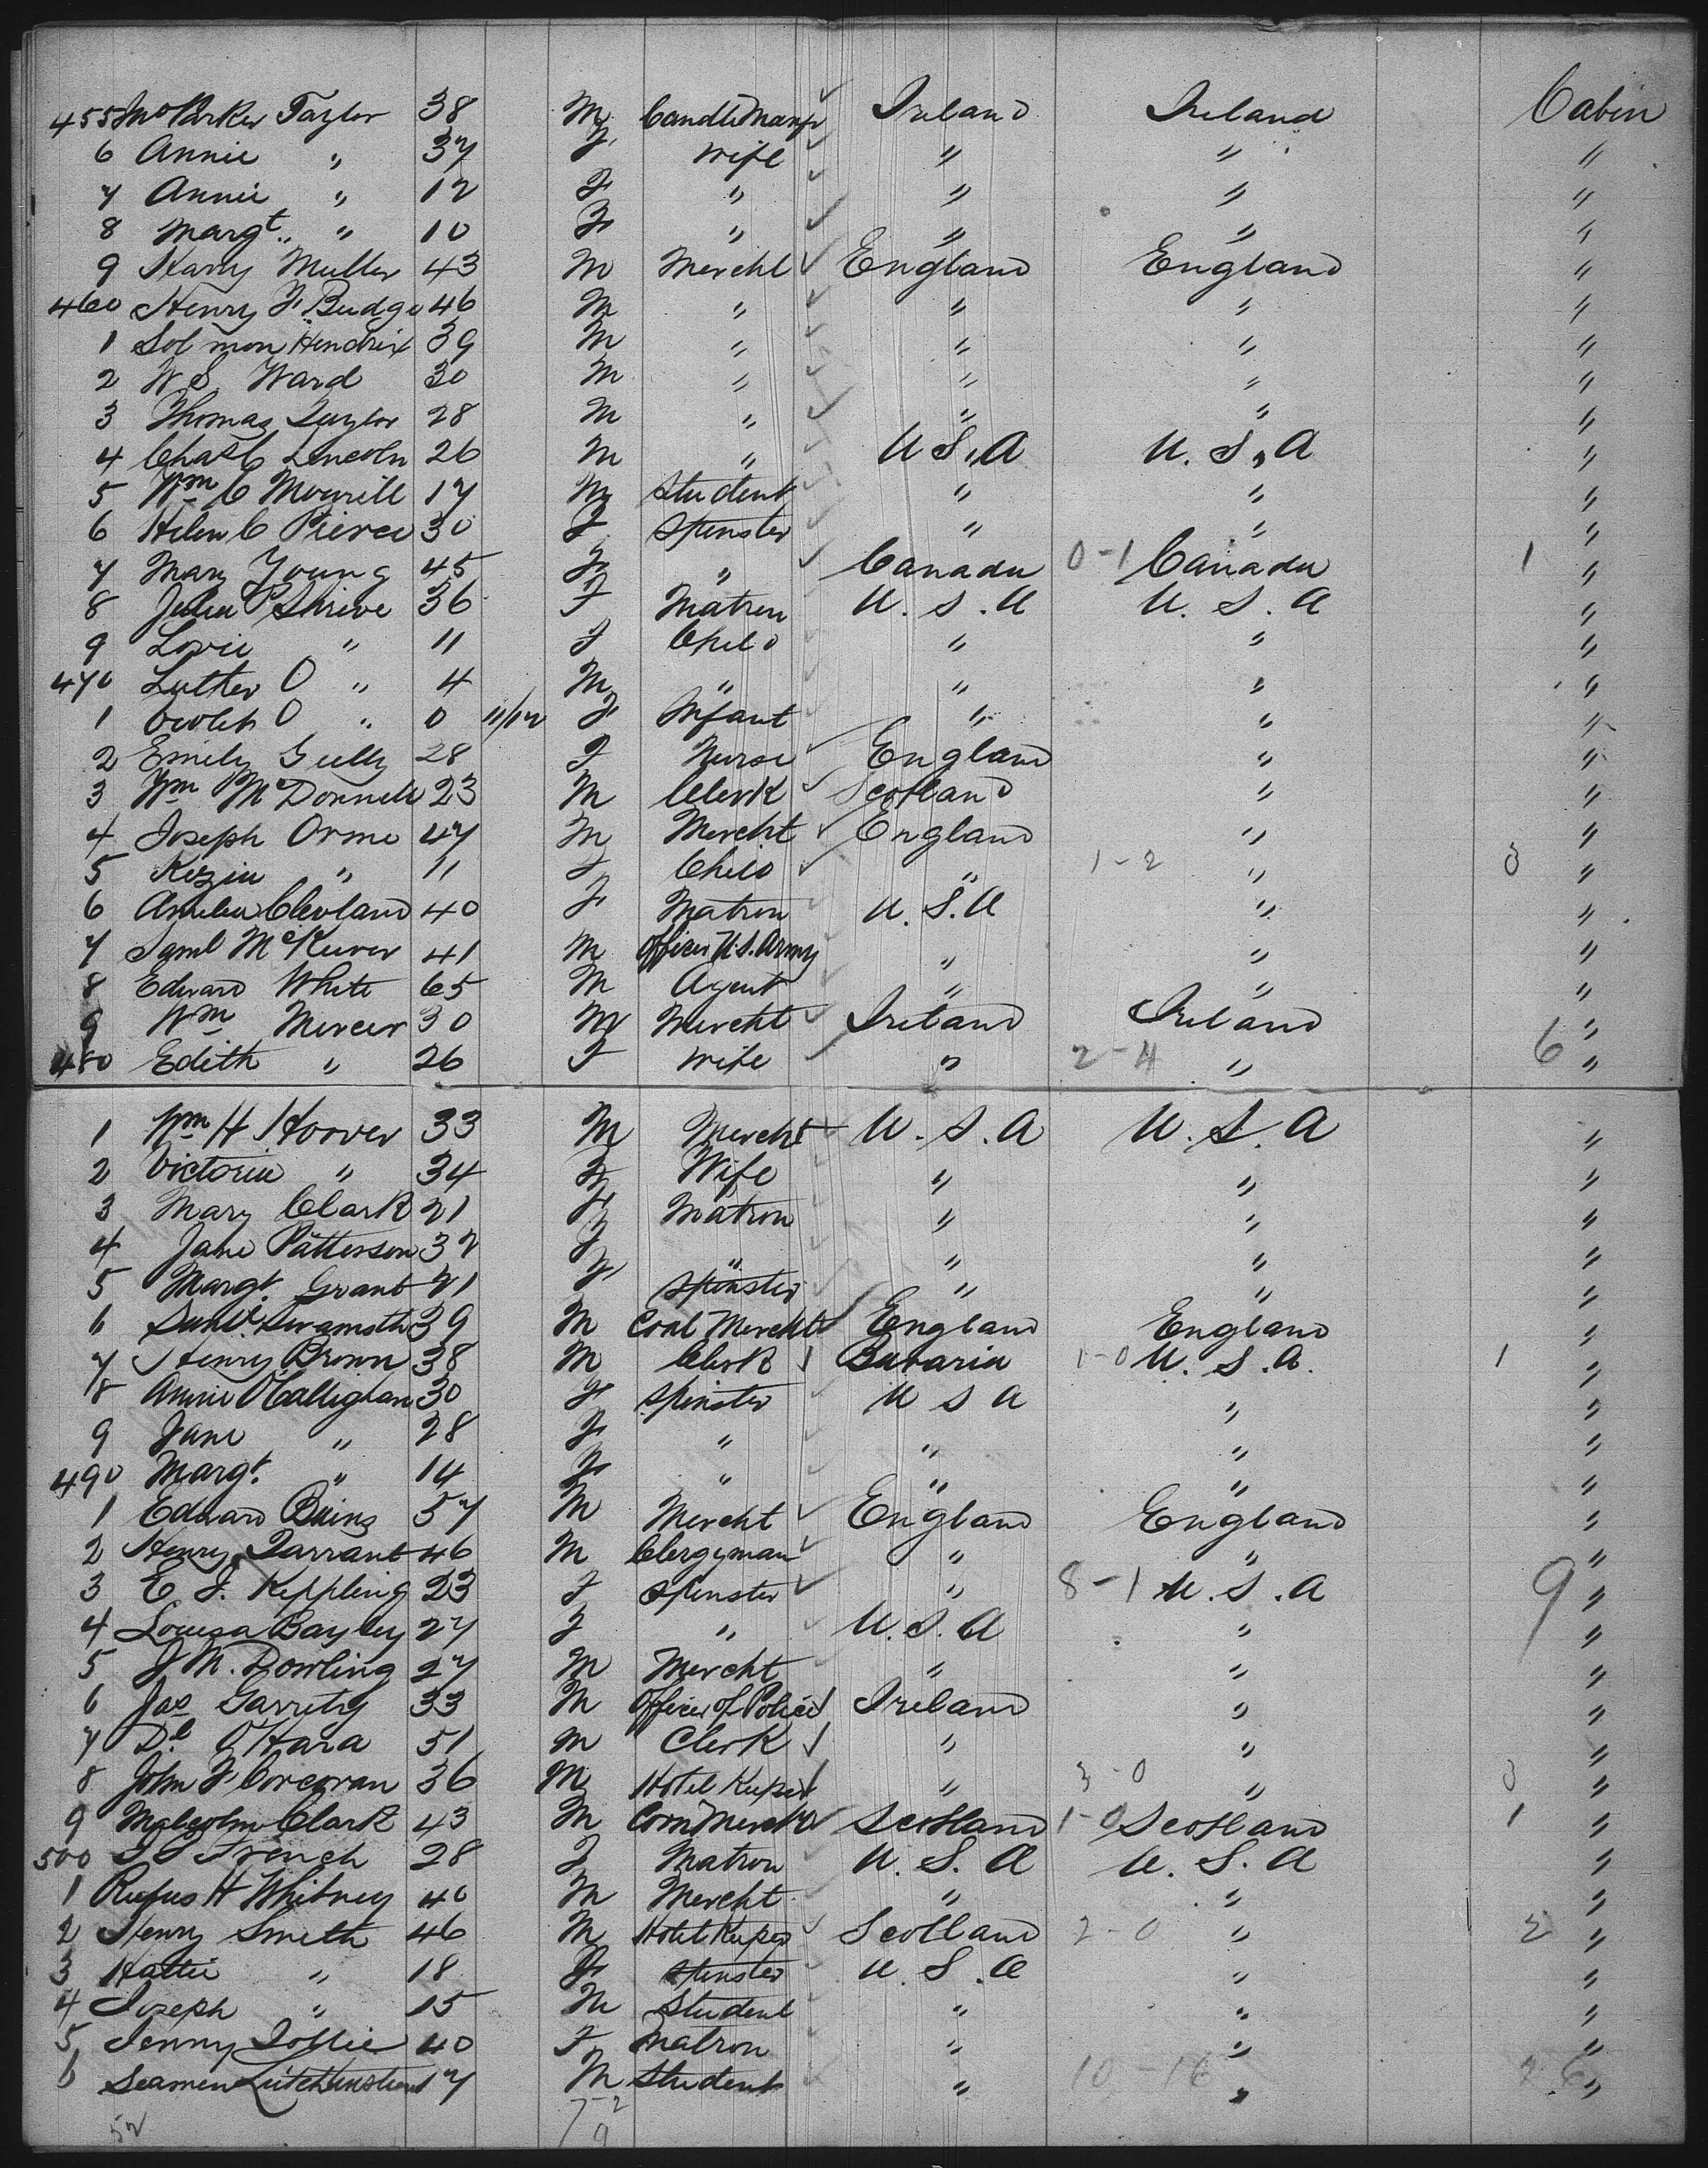 455 Jno Parker Taylor 38 M Candle Manfr Ireland Ireland Cabin
6 Annie " 37 F Wife " " "
7 Annie " 12 F " " " "
8 Margt. " 10 F " " " "
9 Harry Muller 43 M Mercht England England "
460 Henry F. Budge 46 M " " " "
1 Sol mon Hendrix 39 M " " " "
2 W S Ward 30 M " " " "
3 Thomas Taylor 28 M " " " "
4 Chas C Lincoln 26 M " U S, A U. S, A "
5 Wm C Morrill 17 M Student " " "
6 Helen C Pierce 30 F Spinster " " "
7 Mary Young 45 F " Canada 0-1 Canada 1 "
8 Julia P Shrive 36 F Matron U. S. A U. S. A "
9 Lovie " 11 F Child " " "
470 Luther O " 4 M " " " "
1 Violet O " 0 11/12 F Infant " " "
2 Emily Gully 28 F Nurse England " "
3 Wm McDonnell 23 M Clerk Scotland " "
4 Joseph Orme 47 M Mercht England " "
5 Kezia " 11 F Child " 1-2 " 3 "
6 Amelia Clevland 40 F Matron U. S. A " "
7 Saml McKeever 41 M Officer U.S. Army " " "
8 Edward White 65 M Agent " " "
9 Wm Mercer 30 M Mercht Ireland Ireland "
480 Edith " 26 F Wife " 2-4 " 6 "
1 Wm H Hoover 33 M Mercht U. S. A U. S. A "
2 Victoria " 34 F Wife " " "
3 Mary Clark 21 F Matron " " "
4 Jane Patterson 32 F " " " "
5 Margt. Grant 21 F Spinster " " "
6 39 M Coal Mercht England England "
7 Henry Brown 38 M Clerk Bavaria 1-0 U. S. A. 1 "
8 Annie O'Callighan 30 F Spinster U S A " "
9 Jane " 28 F " " " "
490 Margt. " 14 F " " " "
1 Edward Bains 57 M Mercht England England "
2 Henry Tarrant 46 M Clergyman " " "
3 E. J. Keppling 23 F Spinster " 8-1 U. S. A 9 "
4 Louisa Bayley 27 F " U. S. A " "
5 J M. Dowling 27 M Mercht " " "
6 Jas Garrity 33 M Officer of Police Ireland " "
7 Dl O'Hara 51 M Clerk " " "
8 John F Corcoran 36 M Hotel Keeper " 3-0 " 3 "
9 Malcolm Clark 43 M Corn Mercht Scotland 1-0 Scotland 1 "
500 French 28 F Matron U. S. A U. S. A "
1 Rufus H Whitney 40 M Mercht " " "
2 Henry Smith 46 M Hotel Keeper Scotland 2-0 " 2 "
3 Hattie " 18 F Spinster U. S. A " "
4 Joseph " 15 M Student " " "
5 Jenny 40 F Matron " " "
6 17 M Student " 10-16 " 26 "
52 7-2
9